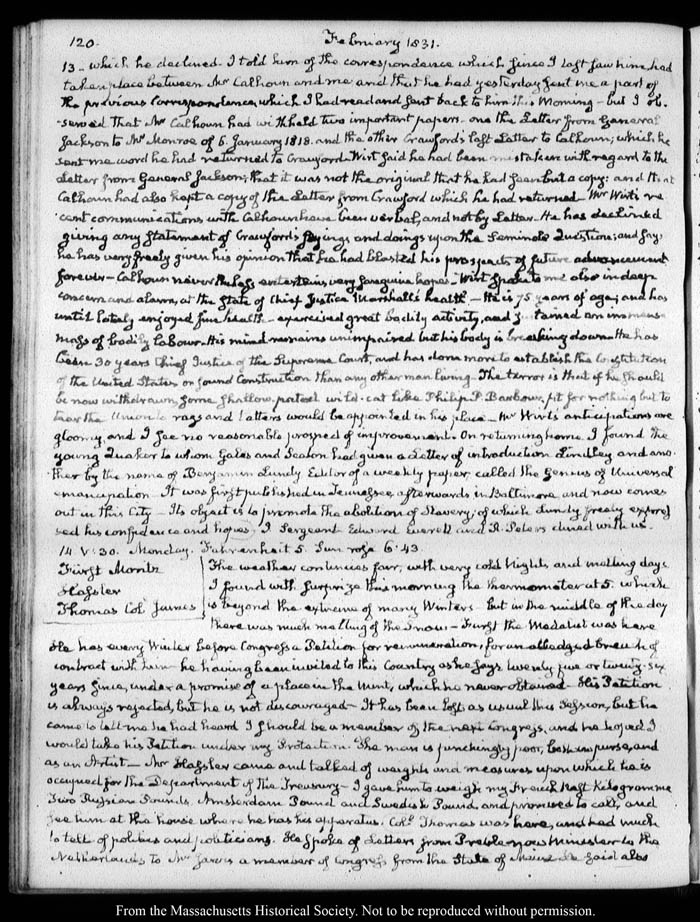 120.
February 1831.
13 - which he declined. I told him of the correspondence which since I last saw him, had
taken place between Mr Calhoun and me and that he had yesterday sent me a part of
the previous correspondence, which I had read and sent back to him this Morning - but I ob-
-served that Mr Calhoun had withheld two important papers - one the Letter from General
Jackson to Mr Monroe of 6. January 1818. and the other Crawford's last Letter to Calhoun, which he
sent me word he had returned to Crawford. Wirt said he had been mistaken with regard to the
Letter from General Jackson; that it was not the original that he had seen but a copy: and that
Calhoun had also kept a copy of the Letter from Crawford which he had returned. Mr Wirt's re
cent communications with Calhoun have been verbal, and not by Letter. He has declined
giving any Statement of Crawford's sayings and doings upon the Seminole Question; and says
he has very freely given his opinion that he had blasted his prospects of future advancement
forever - Calhoun never perhaps entertains very sanguine hopes. Wirt spoke to me also in deep
concern and alarm, at the State of Chief Justice Marshall's health - He is 75 years of age; and has
until lately enjoyed fine health - exercised great bodily activity, and sustained an immense
mass of bodily labour. His mind remains unimpaired but his body is breaking down. He has
been 30 years Chief Justice of the Supreme Court, and has done more to establish the Constitution
of the United States on sound Construction than any other man living. The terror is that if he should
be now withdrawn, some shallow-pated wild-cat like Philip P. Barbour, fit for nothing but to
tear the Union to rags and tatters would be appointed in his place. Mr Wirt's anticipations are
gloomy, and I see no reasonable prospect of improvement. On returning home, I found the
young Quaker to whom Gales and Seaton had given a Letter of introduction Lindley and ano-
ther by the name of Benjamin Lundy Editor of a weekly paper, called the Genius of Universal
emancipation - It was first published in Tennessee, afterwards in Baltimore and now comes
out in this City - Its object is to promote the abolition of Slavery, of which Lundy freely expres
sed his confidence and hopes. J Sergeant Edward Everett and R. Peters dined with us.
14. V:30. Monday. Fahrenheit 5. Sun rose 6:43.
Fürst Moritz
Hassler
Thomas Col. James
The weather continues fair, with very cold Nights and melting days
I found with surprize this morning the thermometer at 5. which
is beyond the extreme of many Winters. but in the middle of the day
there was much melting of the snow - Furst the Medalist was here
He has every Winter before Congress a Petition for remuneration, for an alledged breach of
contract with him - he having been invited to this Country as he says twenty five or twenty-six
years since, under a promise of a place in the Mint, which he never obtained. His Petition
is always rejected, but he is not discouraged - It has been lost as usual this Session, but he
came to tell me he had heard I should be a member of the next Congress, and he hoped I
would take his Petition under my Protection. The man is punchingly poor, both in purse, and
as an Artist - Mr Hassler came and talked of weights and measures upon which he is
occupied for the Department of the Treasury - I gave him to weigh my French Kilogramme
Two Russian Pounds. Amsterdam Pound and Swedish Pound, and promised to call, and
see him at the house where he has his apparatus. Coll. Thomas was here, and had much
to tell of politics and politicians. He spoke of Letters from Preble now Minister to the
Netherlands to Mr Jarvis a member of Congress from the State of Maine he said also
From the Massachusetts Historical Society. Not to be reproduced without permission.